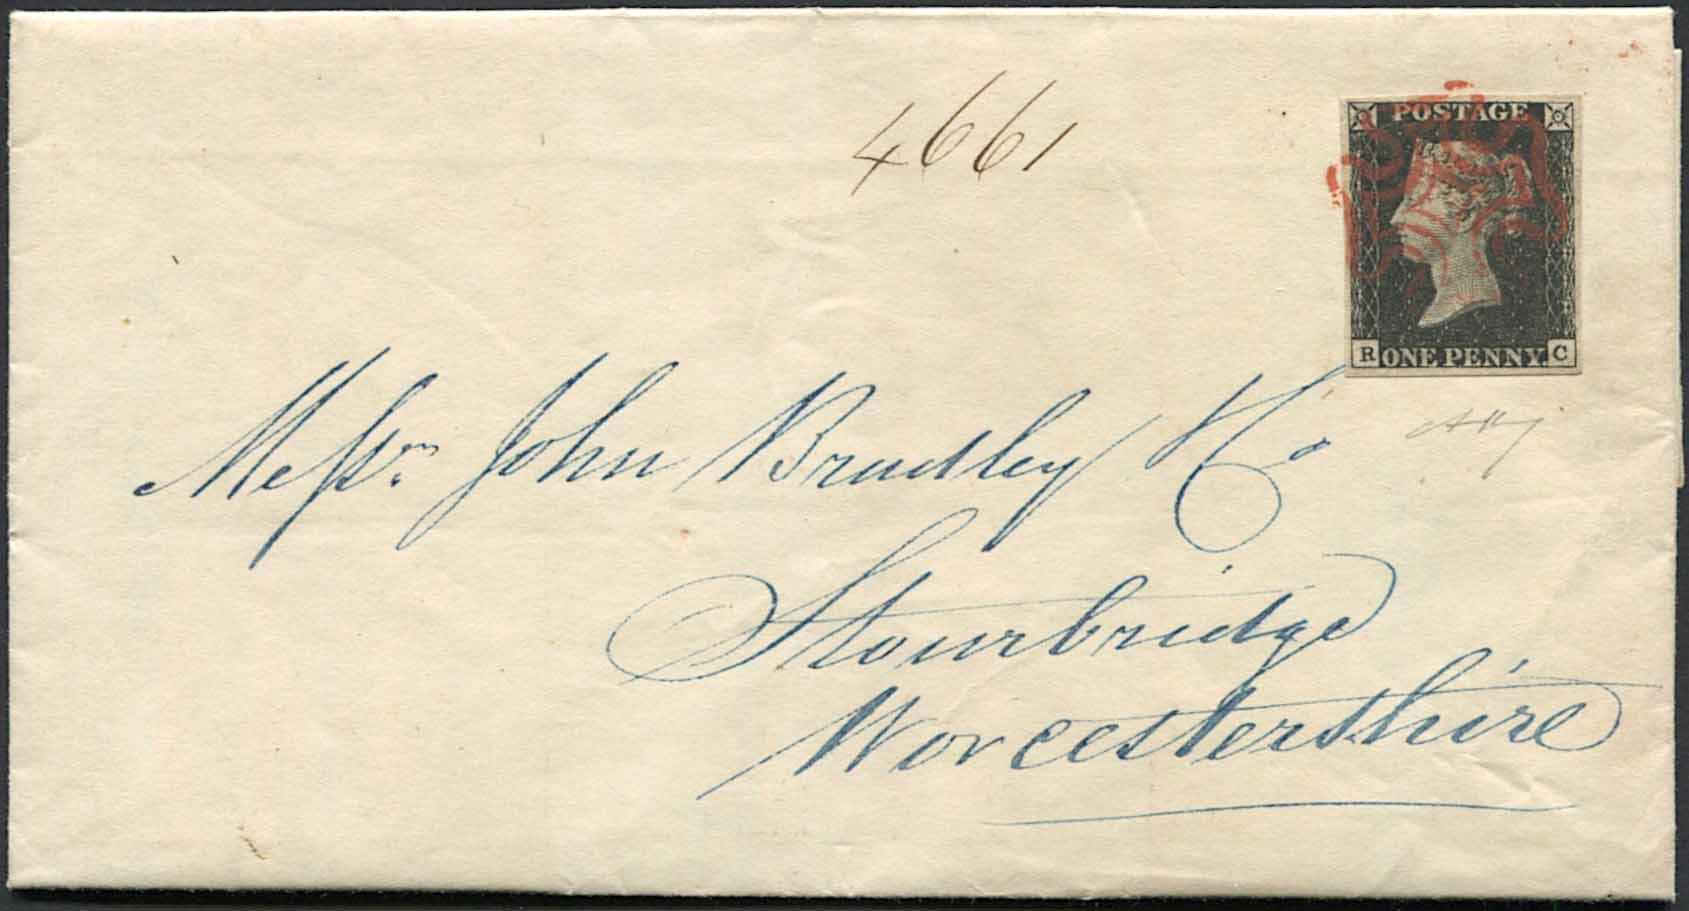 4661
POSTAGE
R ONE PENNY. C
Messrs. John Bradley & Co
Stourbridge
Worcestershire